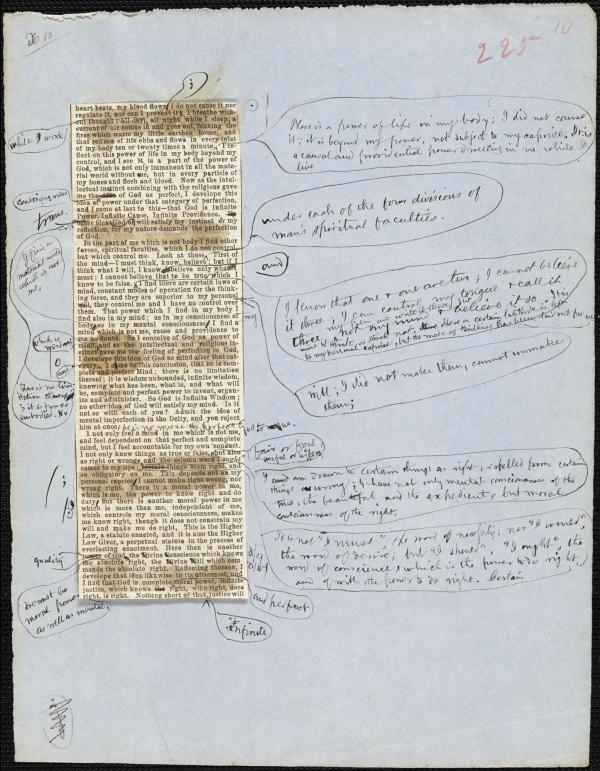 10
225
10
;
heart beats, my blood flows, I do not cause it nor
regulate it, nor can I prevent it; I breathe with-
out thought; all day, all night while I sleep, a
current of air comes in and goes out, fanning the
fires which warm my little earthen house, and
that red sea of life ebbs and flows in every inlet
of my body ten or twenty times a minute. I re-
flect on this power of life in my body beyond my
control, and I see it, is a part of the power of
God, which is not only immanent in all the mate-
rial world without me, but in every particle of
my bones and flesh and blood. Now as the intel-
lectual instinct combining with the religious gave
me the idea of God as perfect, I develope this
idea of power under that category of perfection,
and I come at last to this—that God is Infinite
Power, Infinite Cause, Infinite Providence. No
other idea of God will satisfy my instinct or my
reflection, for my nature demands the perfection
of God.
In the part of me which is not body I find other
forces, spiritual faculties, which I do not control
but which control me. Look at these. First of
the mind—I must think, know, believe; but if I
think what I will, I know believe only what
must; I cannot believe that to be true which I
know to be false. I find there are certain laws of
mind, constant modes of operation for the think-
ing force, and they are superior to my personal
will, they control me and I have no control over
them. That power which I find in my body I
find also in my mind; as in my consciousness of
body so in my mental consciousness I find a
mind which is not me, cause and providence to
me no doubt. So I conceive of God as power of
mind, and as the intellectual and religious in-
stinct gave me the feeling of perfection in God,
I develope this idea of God as mind after that cate-
gory. I come to this conclusion, that he is com-
plete and perfect Mind; there is no limitation
thereof; it is wisdom unbounded, infinite wisdom,
knowing what has been, what is, and what will
be, complete and perfect power to invent, organ-
ize and administer. So God is Infinite Wisdom;
no other idea of God will satisfy my mind. Is it
not so with each of you? Admit the idea of
mental imperfection in the Deity, and you reject
him at once;
I not only feel a mind in me which is not me,
and feel dependent on that perfect and complete
mind, but I feel accountable for my own conduct.
I not only know things as true or false, but also
as right or wrong and the solemn word I ought
comes to my lips; certain things seem right, and
so obligatory on me. This depends not on my
personal caprice; I cannot make right wrong, nor
wrong right. There is a moral power in me,
which is me, the power to know right and do
duty. But there is another moral power in me
which is more than me, independent of me,
which controls my moral consciousness, makes
me know right, though it does not constrain my
will and make me do right. This is the Higher
Law, a statute enacted, and it is also the Higher
Law Giver, a perpetual statute in the process of
everlasting enactment. Here then is another
power of God, the Divine Conscience which knows
the absolute right, the Divine Will which com-
mands the absolute right. Reflecting thereon, I
develope that idea likewise to its uttermost, and
I find that God is complete moral power, infinite
justice, which knows the right, wills right, does
right, is right. Nothing short of that justice will
while I work
consciousness
trans.
quality
There is a power of life in my body; I did not cause
it; it is beyond my power, not subject to my caprice. It is
a causal and providential power dwelling in me while I
live
under each of the four divisions of
man's spiritual faculties.
and
I know that one & one are two; I cannot believe
it three; I can control my tongue & call it
three, not my mind & believe it so.
my
will; I did not make them, cannot unmake
them;
I am drawn to certain things as right, repelled from certain
things as wrong; I have not only mental consciousness of the
true, the beautiful, and the expedient, but moral
consciousness of the right.
It is not "I must" the word of necessity; nor "I would",
the word of desire; but "I should", "I ought", the
word of conscience, which is the power to do right,
and of will, the power to do right. Certain
moral power
as well as mental.
and perfect
Infinite